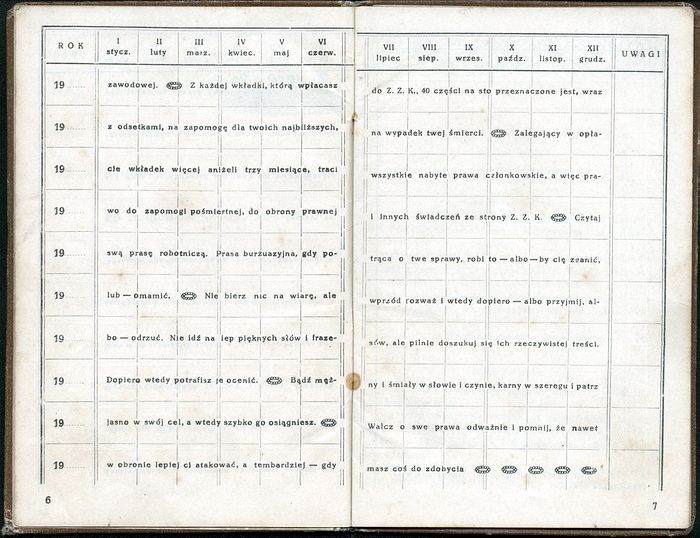 ROK I II III IV V VI VII VIII IX X XI XII UWAGI
stycz. luty marz. kwiec. maj czerw. lipiec siep. wrzes. paźdz. listop. grudz.
19...... zawodowej. Z każdej wkładki, którą wpłacasz do Z. Z. K., 40 części na sto przeznaczone jest, wraz
19...... z odsetkami, na zapomogę dla twoich najbliższych, na wypadek twej śmierci. Zalegający w opła-
19...... cie wkładek więcej aniżeli trzy miesiące, traci wszystkie nabyte prawa członkowskie, a więc pra-
19...... wo do zapomogi pośmiertnej, do obrony prawnej i innych świadczeń ze strony Z. Z. K. Czytaj
19...... swą prasę robotniczą. Prasa burżuazyjna, gdy po- trąca o twe sprawy, robi to — albo — by cię zganić,
19...... lub — omamić. Nie bierz nic na wiarę, ale wprzód rozważ i wtedy dopiero — albo przyjmij, al-
19...... bo — odrzuć. Nie idź na lep pięknych słów i fraze- sów, ale pilnie doszukuj się ich rzeczywistej treści.
19...... Dopiero wtedy potrafisz je ocenić. Bądź męż- ny i śmiały w słowie i czynie, karny w szeregu i patrz
19...... jasno w swój cel, a wtedy szybko go osiągniesz. Walcz o swe prawa odważnie i pomnij, że nawet
19...... w obronie lepiej ci atakować, a tembardziej — gdy masz coś do zdobycia
6 7